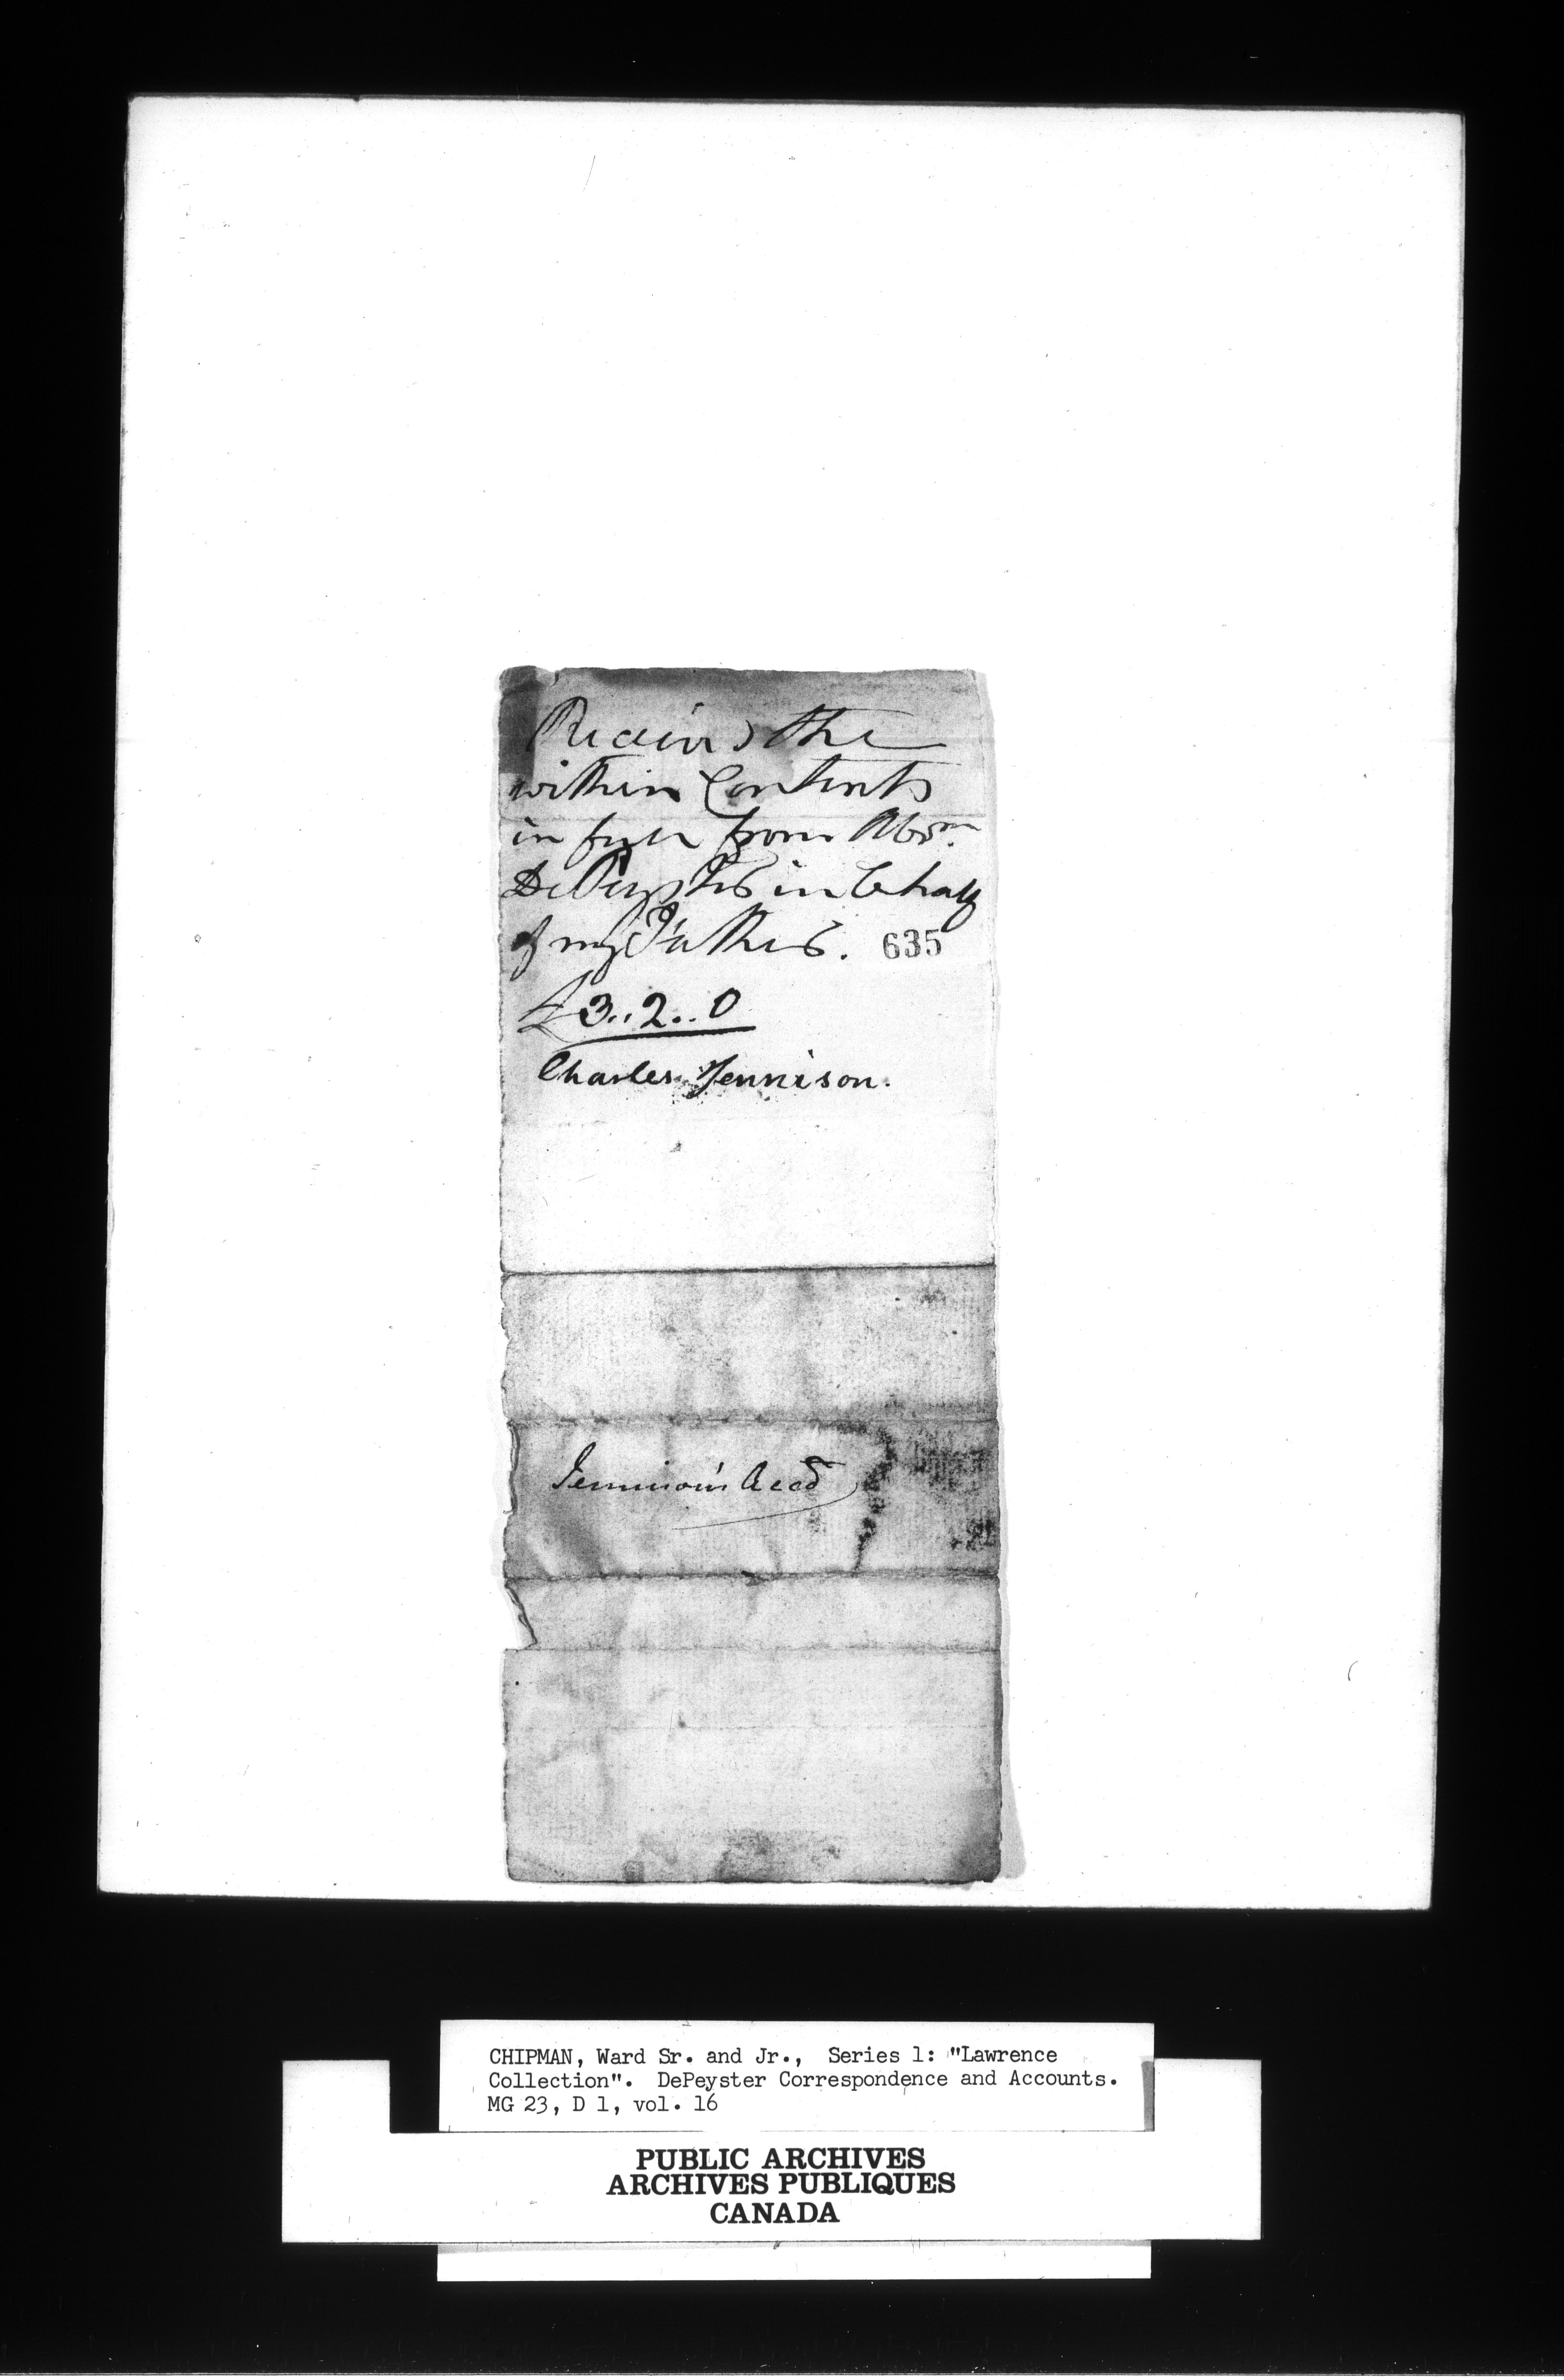 Receiv'd the
within Contents
in full from Abrm.
DePeyster in behalf
of my Father. 635
£3..2..0
Charles Jennison.
Jennison's Acct
CHIPMAN, Ward Sr. and Jr., Series 1: "Lawrence
Collection". DePeyster Correspondence and Accounts.
MG 23, D 1, vol. 16
PUBLIC ARCHIVES
ARCHIVES PUBLIQUES
CANADA